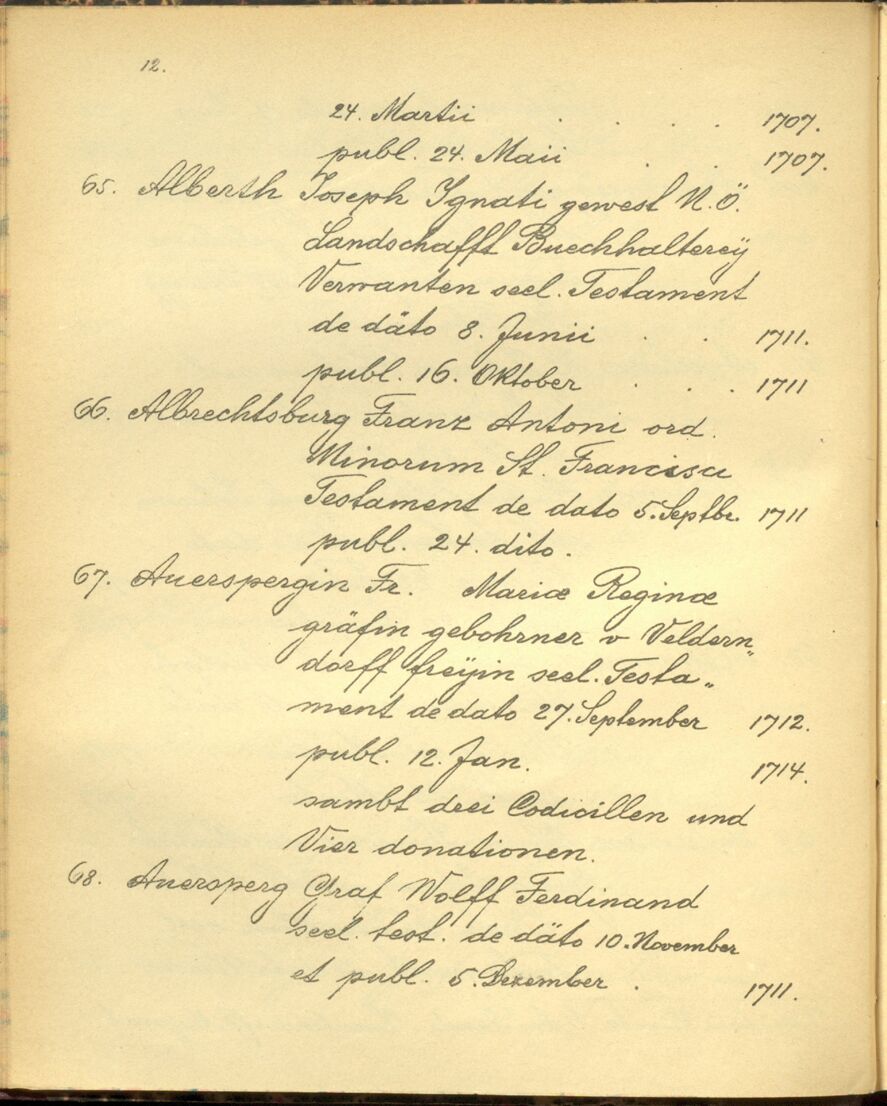 12.
24. Martii . . . . 1707.
publ. 24. Maii . . 1707.
65. Alberth Joseph Ignati gewest N. Ö.
Landschafft Buechhalterey
Verwanten seel. Testament
de däto 8. Junii . . 1711.
publ. 16. Oktober . . . 1711
66. Albrechtsburg Franz Antoni ord.
Minorum St. Francisci
Testament de dato 5. Septbr. 1711
publ. 24. dito.
67. Auerspergin Fr. Mariæ Reginæ
gräfin gebohrner v Veldern„
dorff freÿin seel. Testa„
ment de dato 27. September 1712.
publ. 12. Jan. 1714.
sambt drei Codicillen und
Vier donationen.
68. Auersperg Graf Wolff Ferdinand
seel. test. de däto 10. November
et publ. 5. Dezember . 1711.